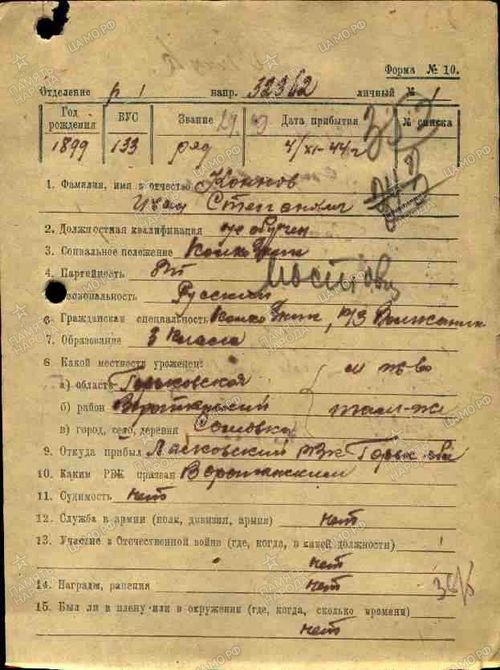 Форма № 10.
Отделение р / напр. 32362 личный №
Год рождения ВУС Звание Дата прибытия № списка
1899 133 ряд 4/XI-44 г
1. Фамилия, имя и отчество Коннов
Иван Степанович
2. Должностная квалификация не обучен
3. Социальное положение Колхозник
4. Партийность б/п
5. Национальность Русский
6. Гражданская специальность Колхозник,
7. Образование 3 класса
8. Какой местности уроженец: м ж-во
а) область Горьковская
б) район Воротынский
в) город, село, деревня Сомовка
9. Откуда прибыл РВК Горьк. обл
10. Каким РВК призван Воротынским
11. Судимость нет
12. Служба в армии (полк, дивизия, армия) нет
13. Участие в Отечественной войне (где, когда, в какой должности)
нет
14. Награды, ранения нет
15. Был ли в плену или в окружении (где, когда, сколько времени)
нет